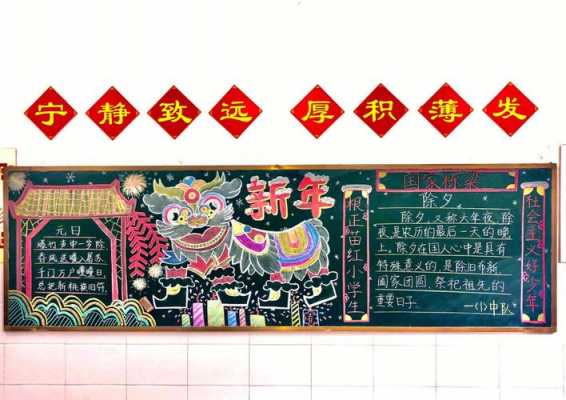 宁静致远 厚积薄发
元日
爆竹声中一岁除
春风送暖入屠苏
千门万户曈曈日
总把新桃换旧符
新年
根正苗红小学生
国家栋梁
除夕
除夕，又称大年夜，除
夜是农历的最后一天的晚
上，除夕在国人心中是具有
特殊意义的，是除旧布新，
阖家团圆，祭祀祖先的
重要日子。
一(1)中队
社会主义好少年